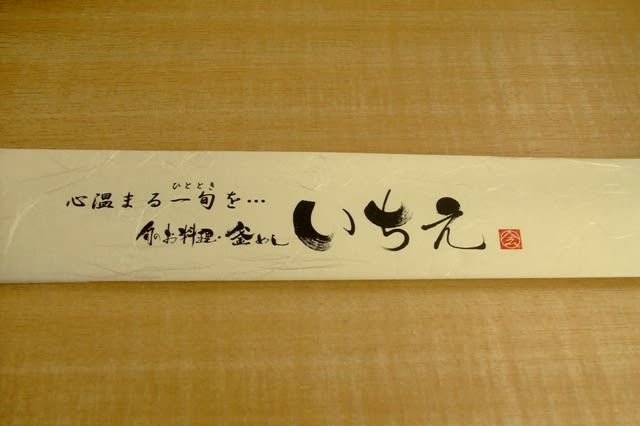 心温まる一旬を…
ひととき
旬のお料理・釜めし
いちえ